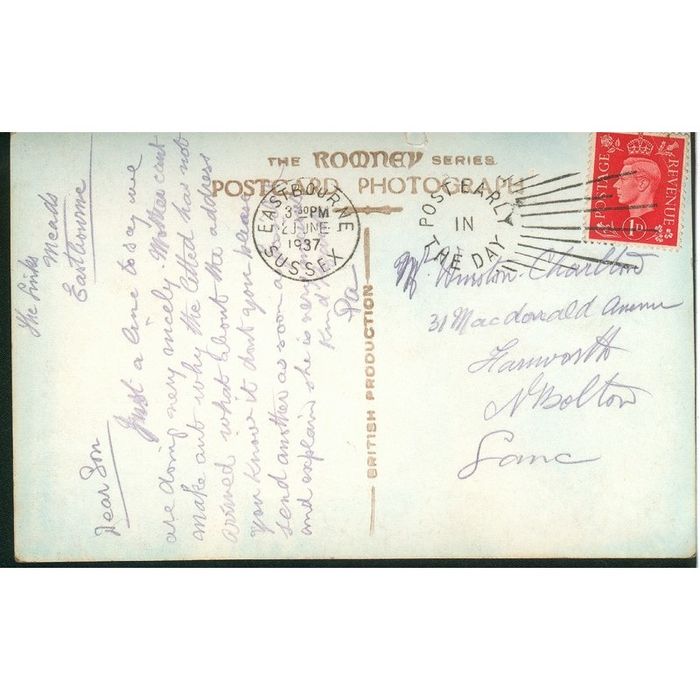 THE ROMNEY SERIES.
POSTCARD PHOTOGRAPH
BRITISH PRODUCTION
EASTBOURNE
3-30PM
2 JUNE
1937
SUSSEX
POST EARLY
IN
THE DAY
POSTAGE REVENUE
1D
The Links
Meads
Eastbourne
Dear Son
Just a line to say we
are doing very nicely. Mother cant
make out why the letter has not
arrived what about the address
you know it dont you please
send another as soon as
and explain she is very
Kind
Pa
Mr Winston Charlton
31 Macdonald Avenue
Farnworth
Nr Bolton
Lanc